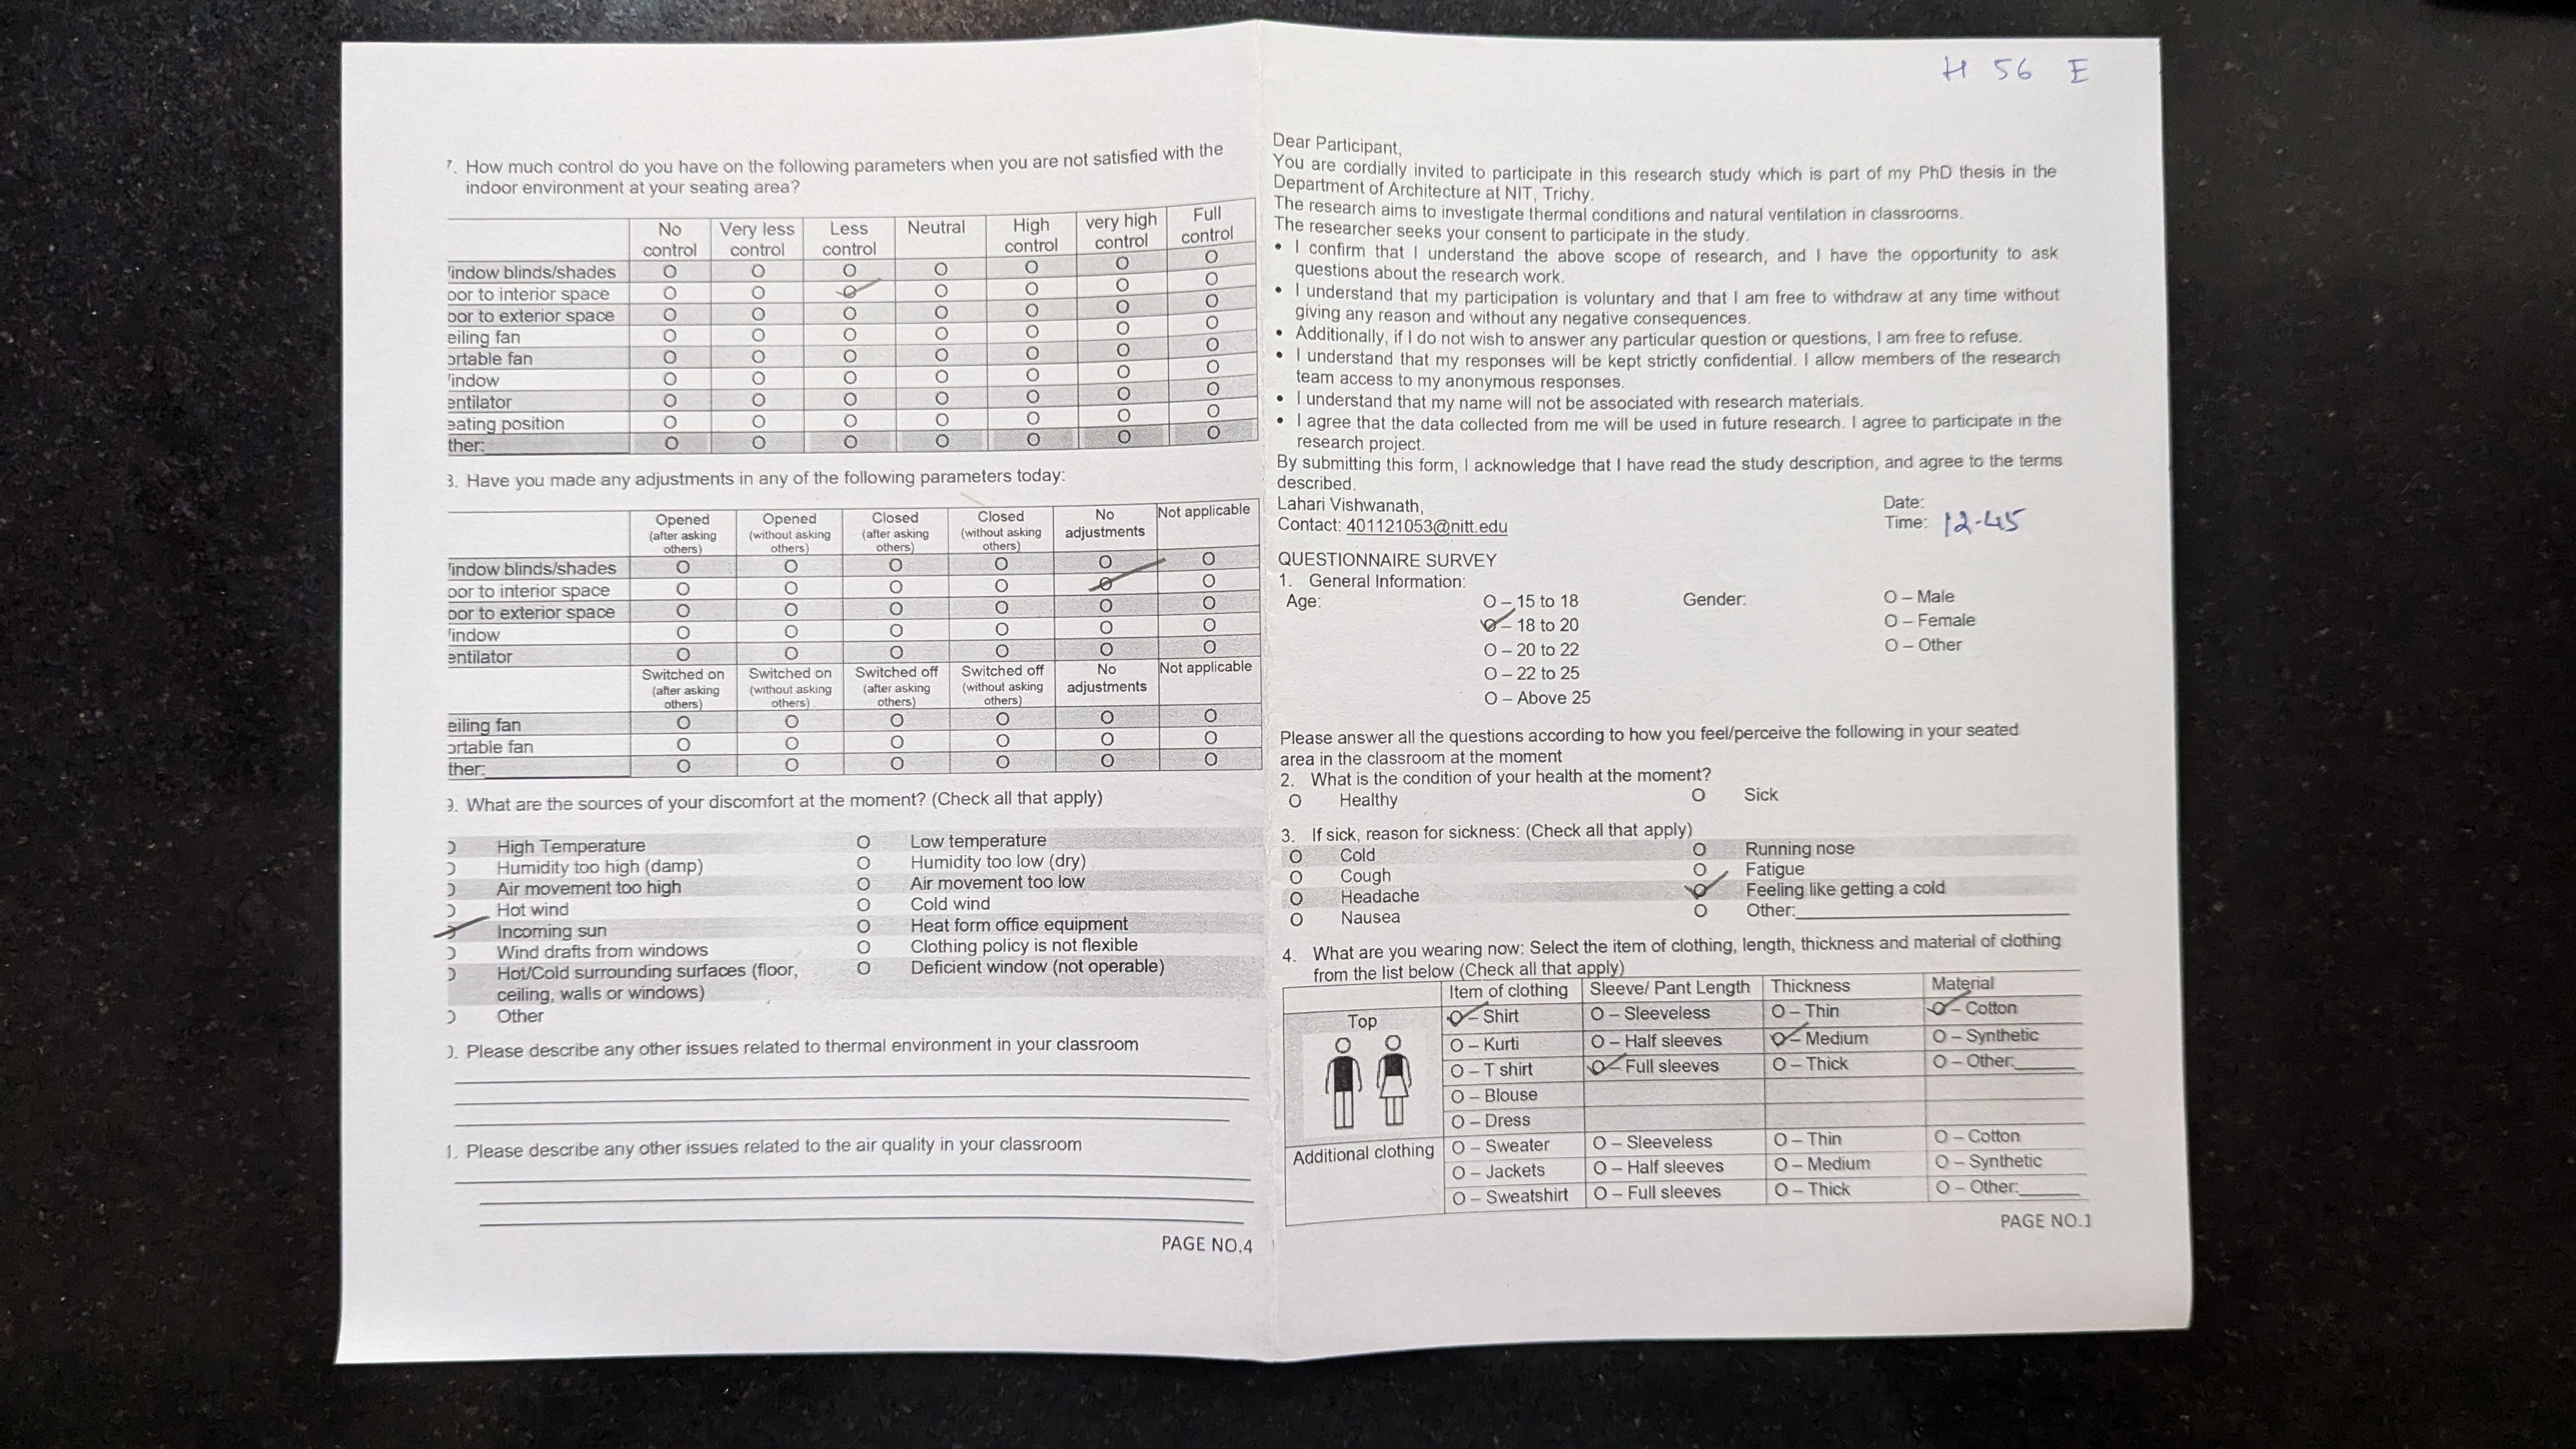 7. How much control do you have on the following parameters when you are not satisfied with the
indoor environment at your seating area?
No control Very less control Less control Neutral High control very high control Full control
indow blinds/shades O O O O O O O
oor to interior space O O O O O O O
oor to exterior space O O O O O O O
eiling fan O O O O O O O
ortable fan O O O O O O O
indow O O O O O O O
entilator O O O O O O O
eating position O O O O O O O
ther: O O O O O O O
3. Have you made any adjustments in any of the following parameters today:
Opened (after asking others) Opened (without asking others) Closed (after asking others) Closed (without asking others) No adjustments Not applicable
indow blinds/shades O O O O O O
oor to interior space O O O O O O
oor to exterior space O O O O O O
indow O O O O O O
entilator O O O O O O
Switched on (after asking others) Switched on (without asking others) Switched off (after asking others) Switched off (without asking others) No adjustments Not applicable
eiling fan O O O O O O
ortable fan O O O O O O
ther: O O O O O O
9. What are the sources of your discomfort at the moment? (Check all that apply)
High Temperature O Low temperature
Humidity too high (damp) O Humidity too low (dry)
Air movement too high O Air movement too low
Hot wind O Cold wind
Incoming sun O Heat form office equipment
Wind drafts from windows O Clothing policy is not flexible
Hot/Cold surrounding surfaces (floor, O Deficient window (not operable)
ceiling, walls or windows)
Other
). Please describe any other issues related to thermal environment in your classroom
1. Please describe any other issues related to the air quality in your classroom
PAGE NO.4
H 56 E
Dear Participant,
You are cordially invited to participate in this research study which is part of my PhD thesis in the
Department of Architecture at NIT, Trichy.
The research aims to investigate thermal conditions and natural ventilation in classrooms.
The researcher seeks your consent to participate in the study.
• I confirm that I understand the above scope of research, and I have the opportunity to ask
questions about the research work.
• I understand that my participation is voluntary and that I am free to withdraw at any time without
giving any reason and without any negative consequences.
• Additionally, if I do not wish to answer any particular question or questions, I am free to refuse.
• I understand that my responses will be kept strictly confidential. I allow members of the research
team access to my anonymous responses.
• I understand that my name will not be associated with research materials.
• I agree that the data collected from me will be used in future research. I agree to participate in the
research project.
By submitting this form, I acknowledge that I have read the study description, and agree to the terms
described.
Lahari Vishwanath, Date:
Contact: 401121053@nitt.edu Time: 12-45
QUESTIONNAIRE SURVEY
1. General Information:
Age: O – 15 to 18 Gender: O – Male
O – 18 to 20 O – Female
O – 20 to 22 O – Other
O – 22 to 25
O – Above 25
Please answer all the questions according to how you feel/perceive the following in your seated
area in the classroom at the moment
2. What is the condition of your health at the moment?
O Healthy O Sick
3. If sick, reason for sickness: (Check all that apply)
O Cold O Running nose
O Cough O Fatigue
O Headache O Feeling like getting a cold
O Nausea O Other:
4. What are you wearing now: Select the item of clothing, length, thickness and material of clothing
from the list below (Check all that apply)
Item of clothing Sleeve/ Pant Length Thickness Material
Top O – Shirt O – Sleeveless O – Thin O – Cotton
O – Kurti O – Half sleeves O – Medium O – Synthetic
O – T shirt O – Full sleeves O – Thick O – Other:
O – Blouse
O – Dress
Additional clothing O – Sweater O – Sleeveless O – Thin O – Cotton
O – Jackets O – Half sleeves O – Medium O – Synthetic
O – Sweatshirt O – Full sleeves O – Thick O – Other:
PAGE NO.1